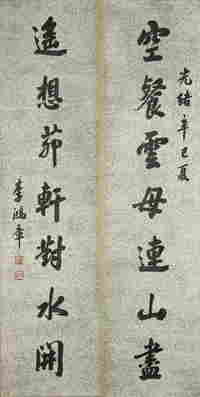 光緒辛巳夏
空餐雲母連山盡
遙想茆軒對水開
李鴻章